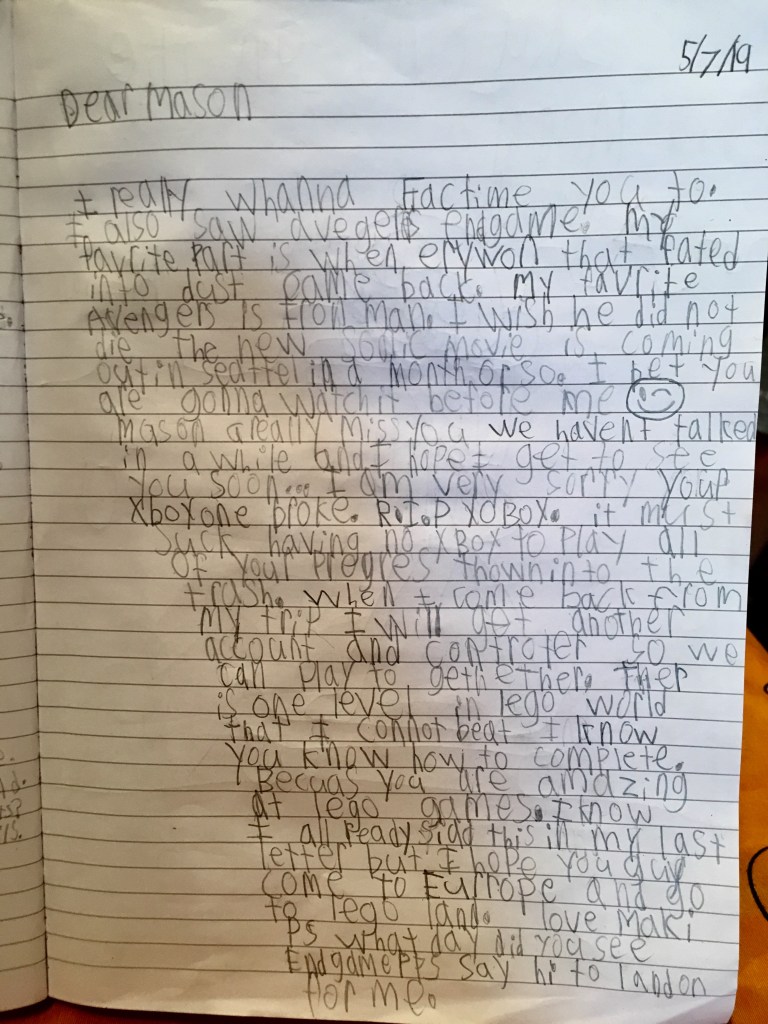 5/7/19
Dear Mason
I really whanna Factime you to.
I also saw avegers endgame. my
favrite part is when erywon that fated
into dust came back. my favrite
Avengers is Iron man. I wish he did not
die the new sonic movie is coming
out in seattel in a month or so. I bet you
are gonna watch it before me
mason I really miss you we havent talked
in a while and I hope I get to see
you soon... I am very sorry your
Xbox one broke. R.I.P XOBOX. it must
suck having no XBox to play all
of your progres thown into the
trash. when I come back from
my trip I will get another
account and controler so we
can play to gethether. Ther
is one level in lego world
that I connot beat I know
you know how to complete.
Becuas you are amazing
at lego games. I know
I all ready sidd this in my last
letter but I hope you guy
come to Eurrope and go
to lego land. love Maki
PS what day did you see
Endgame PPS say hi to landon
for me.